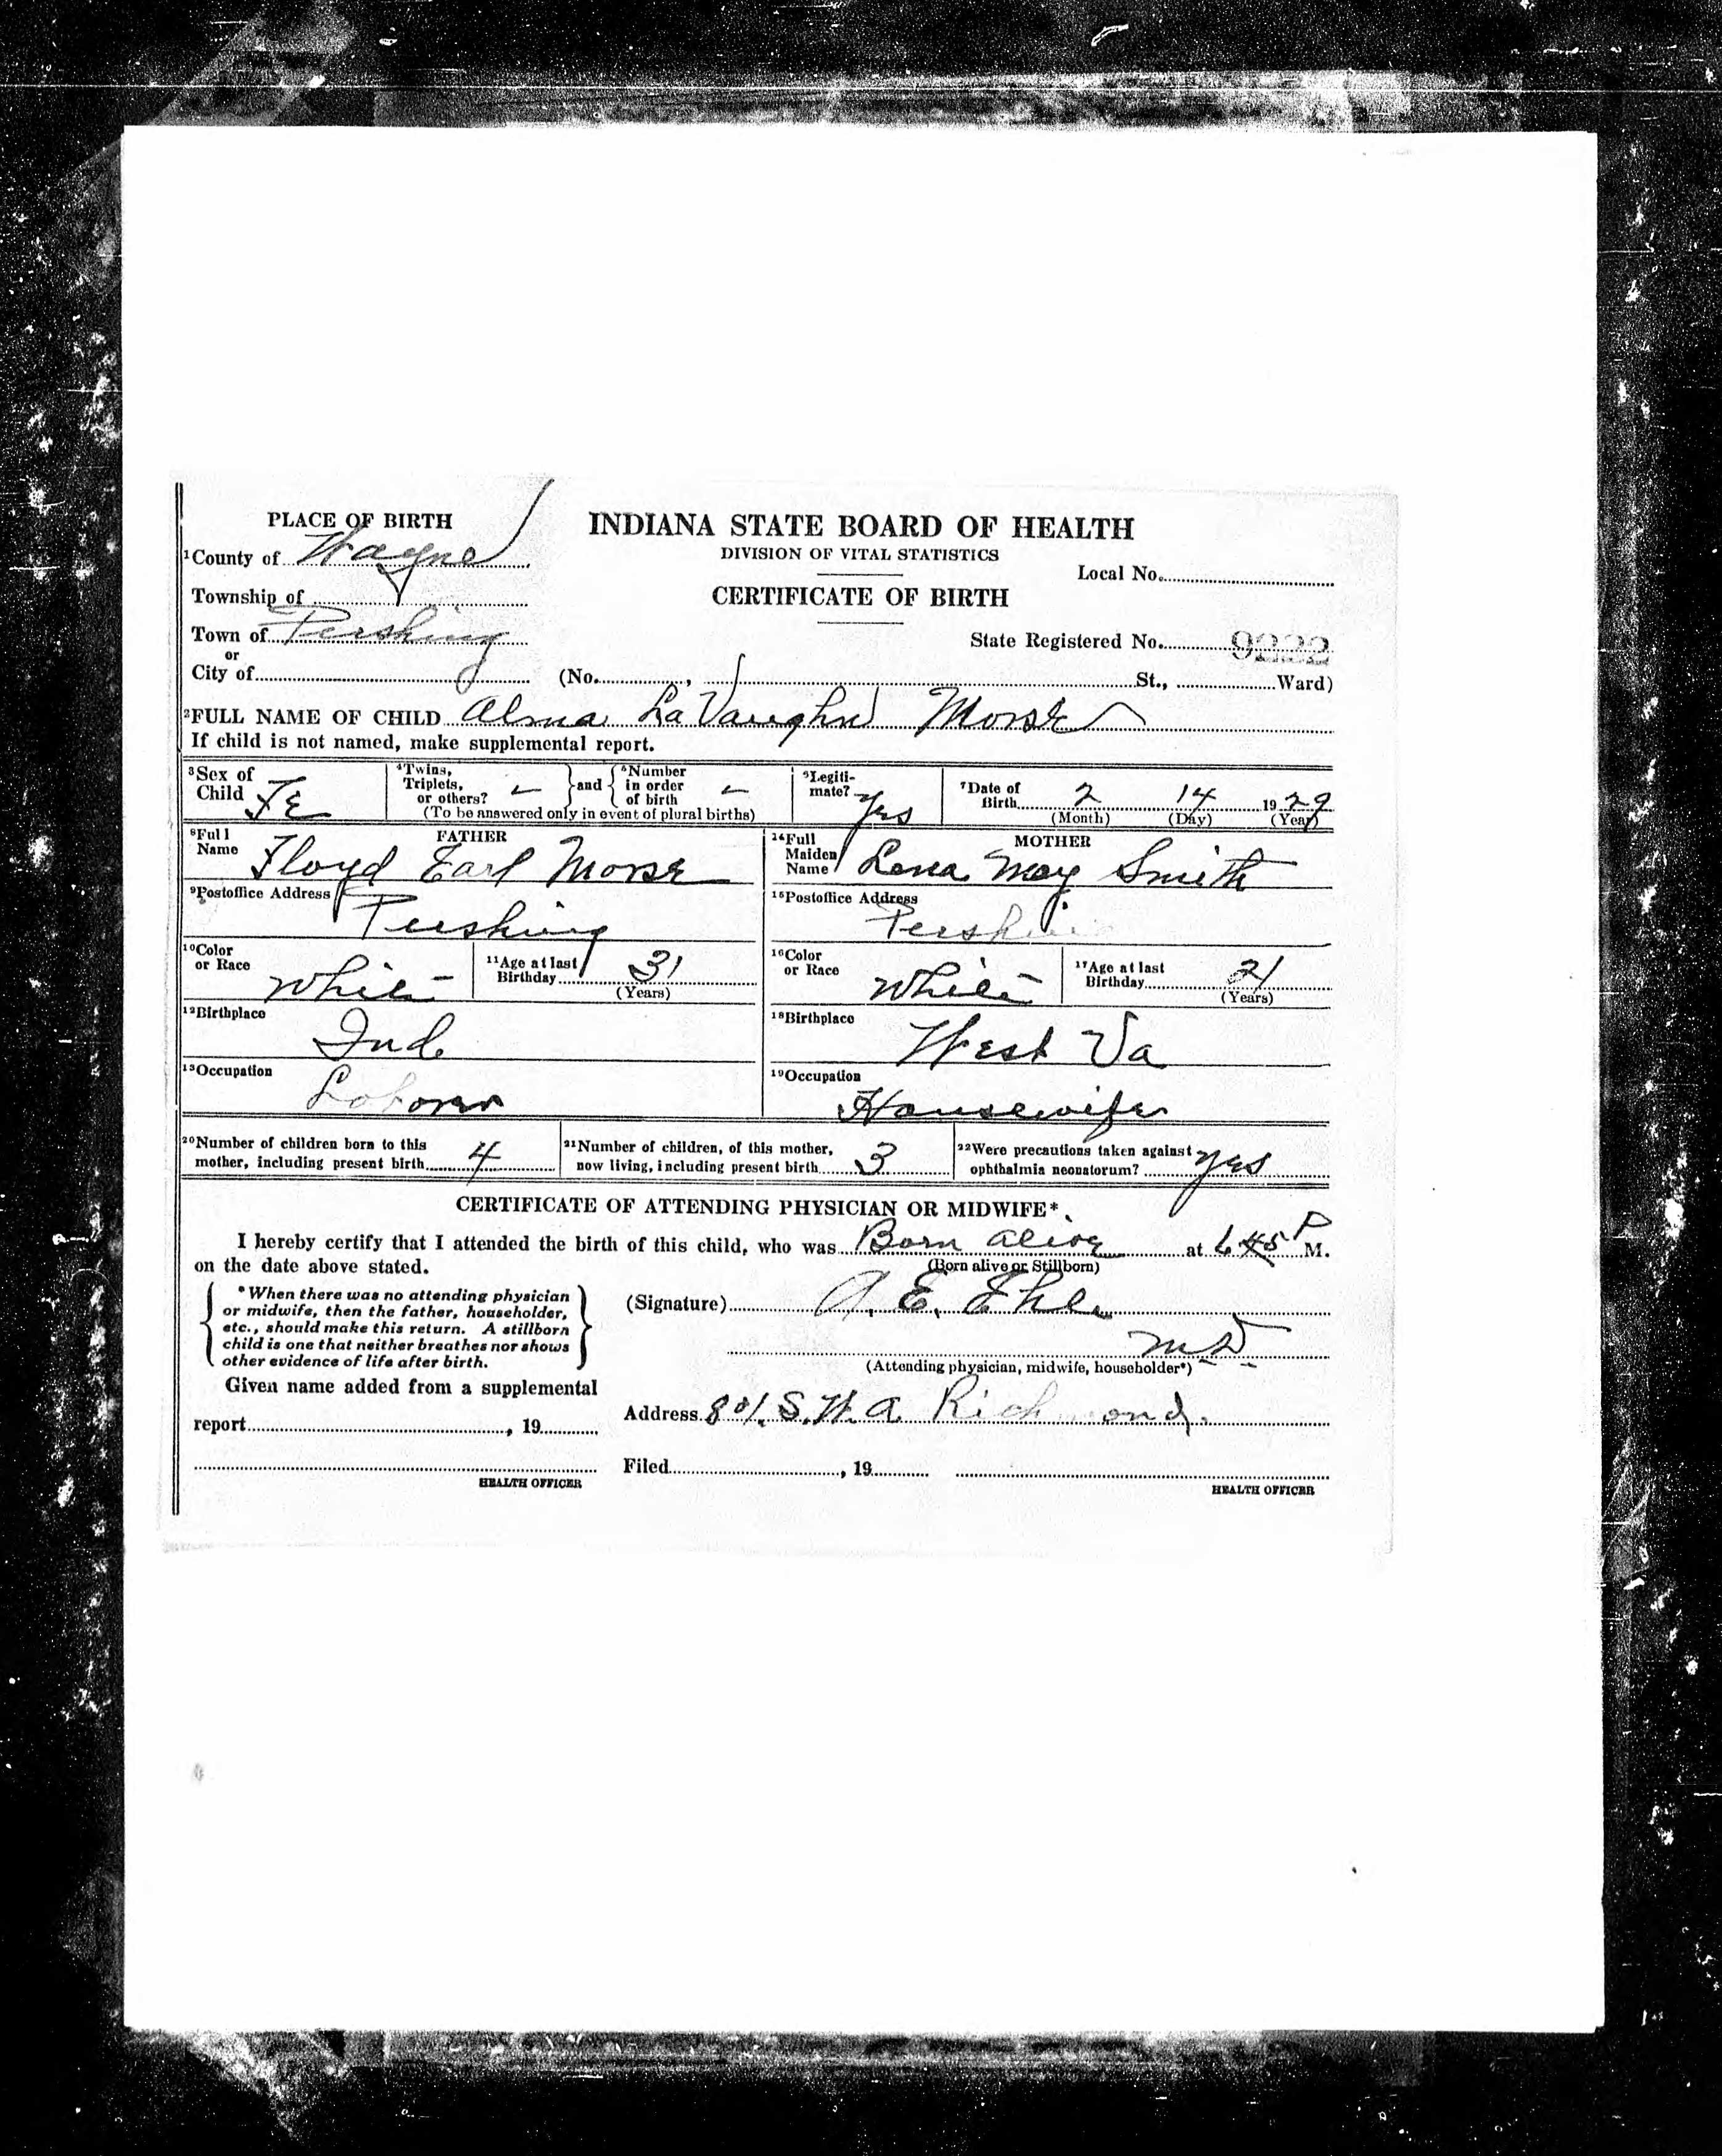 PLACE OF BIRTH
INDIANA STATE BOARD OF HEALTH
DIVISION OF VITAL STATISTICS
1 County of Wayne
Local No.
Township of
CERTIFICATE OF BIRTH
Town of Pershing
or
State Registered No. 9222
City of (No. , St., Ward)
2 FULL NAME OF CHILD Alma LaVaughn Morse
If child is not named, make supplemental report.
3 Sex of Child Fe
4 Twins, Triplets, or others? and 5 Number in order of birth
(To be answered only in event of plural births)
9 Legitimate? Yes
7 Date of Birth 2 14 1929
(Month) (Day) (Year)
8 Full Name FATHER
Floyd Earl Morse
14 Full Maiden Name MOTHER
Lena May Smith
9 Postoffice Address
Pershing
15 Postoffice Address
Pershi
10 Color or Race White
11 Age at last Birthday 31
(Years)
16 Color or Race White
17 Age at last Birthday 21
(Years)
12 Birthplace
Ind.
18 Birthplace
West Va
13 Occupation
19 Occupation
Housewife
20 Number of children born to this mother, including present birth 4
21 Number of children, of this mother, now living, including present birth 3
22 Were precautions taken against ophthalmia neonatorum? yes
CERTIFICATE OF ATTENDING PHYSICIAN OR MIDWIFE*
I hereby certify that I attended the birth of this child, who was Born alive at 6 45 P M.
on the date above stated. (Born alive or Stillborn)
*When there was no attending physician
or midwife, then the father, householder,
etc., should make this return. A stillborn
child is one that neither breathes nor shows
other evidence of life after birth.
(Signature) A. E.
M D
(Attending physician, midwife, householder*)
Given name added from a supplemental
report , 19
Address 801. S. W. A Richmond.
Filed , 19
HEALTH OFFICER
HEALTH OFFICER